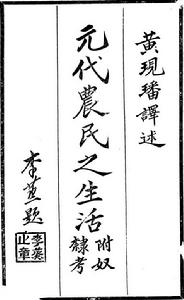 黃現璠譯述
元代農民之生活
附奴
隸考
李蒸題
李蒸
之章